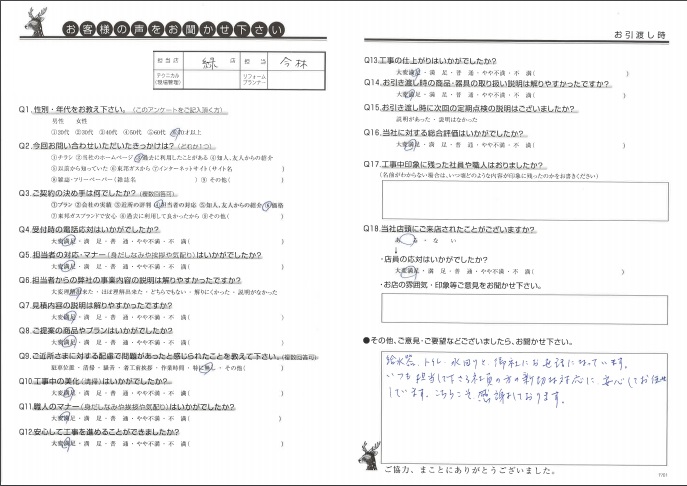 お客様の声をお聞かせ下さい
担当店 緑 店 担当 今林
テクニカル(現場管理) リフォームプランナー
Q1.性別・年代をお教え下さい。(このアンケートをご記入頂く方)
男性 女性
①20代 ②30代 ③40代 ④50代 ⑤60代 ⑥70才以上
Q2.今回お問い合わせいただいたきっかけは?(どれか1つ)
①チラシ ②当社のホームページ ③過去に利用したことがある ④知人、友人からの紹介
⑤以前から知っていた ⑥東邦ガスから ⑦インターネットサイト(サイト名 )
⑧雑誌・フリーペーパー(雑誌名 ) ⑨その他( )
Q3.ご契約の決め手は何でしたか?(複数回答可)
①プラン ②会社の実績 ③近所の評判 ④担当者の対応 ⑤知人、友人からの紹介 ⑥価格
⑦東邦ガスブランドで安心 ⑧過去に利用して良かったから ⑨その他( )
Q4.受付時の電話応対はいかがでしたか?
大変満足・満 足・普 通・やや不満・不 満( )
Q5.担当者の対応・マナー(身だしなみや挨拶や気配り)はいかがでしたか?
大変満足・満 足・普 通・やや不満・不 満( )
Q6.担当者からの弊社の事業内容の説明は解りやすかったですか?
大変理解出来た・ほぼ理解出来た・どちらでもない・解りにくかった・説明がなかった
Q7.見積内容の説明は解りやすかったですか?
大変満足・満 足・普 通・やや不満・不 満( )
Q8.ご提案の商品やプランはいかがでしたか?
大変満足・満 足・普 通・やや不満・不 満( )
Q9.ご近所さまに対する配慮で問題があったと感じられたことを教えて下さい。(複数回答可)
駐車位置・清掃・騒音・着工前挨拶・作業時間・特に無し・その他( )
Q10.工事中の美化(清掃)はいかがでしたか?
大変満足・満 足・普 通・やや不満・不 満( )
Q11.職人のマナー(身だしなみや挨拶や気配り)はいかがでしたか?
大変満足・満 足・普 通・やや不満・不 満( )
Q12.安心して工事を進めることができましたか?
大変満足・満 足・普 通・やや不満・不 満( )
お引渡し時
Q13.工事の仕上がりはいかがでしたか?
大変満足・満 足・普 通・やや不満・不 満( )
Q14.お引渡し時の商品・器具の取り扱い説明は解りやすかったですか?
大変満足・満 足・普 通・やや不満・不 満( )
Q15.お引渡し時に次回の定期点検の説明はございましたか?
説明があった・説明はなかった
Q16.当社に対する総合評価はいかがでしたか?
大変満足・満 足・普 通・やや不満・不 満( )
Q17.工事中印象に残った社員や職人はおりましたか?
(名前がわからない場合は、いつ頃どのような内容が印象に残ったのかをお書きください)
Q18.当社店頭にご来店されたことがございますか?
あ る ・ な い
↓
・店員の応対はいかがでしたか?
大変満足・満 足・普 通・やや不満・不 満( )
・お店の雰囲気・印象等ご意見をお聞かせ下さい。
●その他、ご意見・ご要望などございましたら、お聞かせ下さい。
給水器、トイレ・水回りと、御社にお世話になっています。
いつも担当して下さる社員の方の親切な対応に、安心してお任せ
しています。こちらこそ感謝しております。
ご協力、まことにありがとうございました。